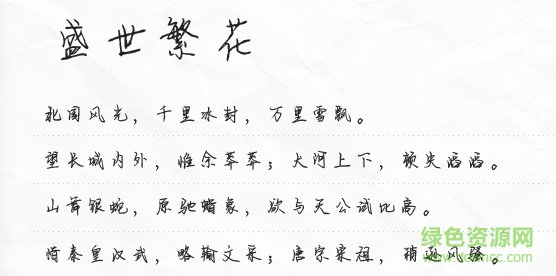 盛世繁花
北国风光，千里冰封，万里雪飘。
望长城内外，惟余莽莽；大河上下，顿失滔滔。
山舞银蛇，原驰蜡象，欲与天公试比高。
惜秦皇汉武，略输文采；唐宗宋祖，稍逊风骚。
绿色资源网
www.downcc.com